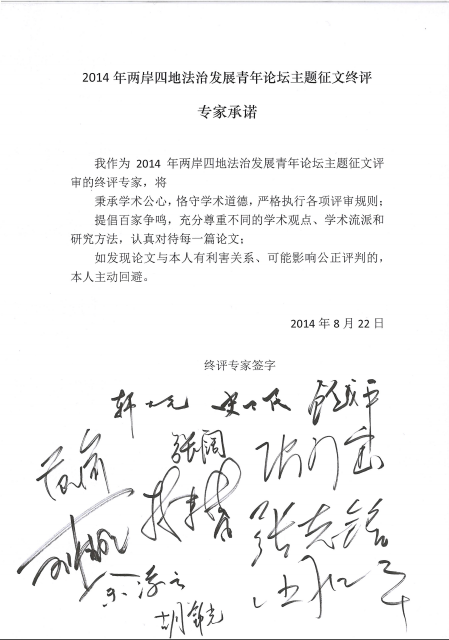 2014 年两岸四地法治发展青年论坛主题征文终评
专家承诺
我作为 2014 年两岸四地法治发展青年论坛主题征文评
审的终评专家，将
秉承学术公心，恪守学术道德，严格执行各项评审规则；
提倡百家争鸣，充分尊重不同的学术观点、学术流派和
研究方法，认真对待每一篇论文；
如发现论文与本人有利害关系、可能影响公正评判的，
本人主动回避。
2014 年 8 月 22 日
终评专家签字
张阔
张志铭